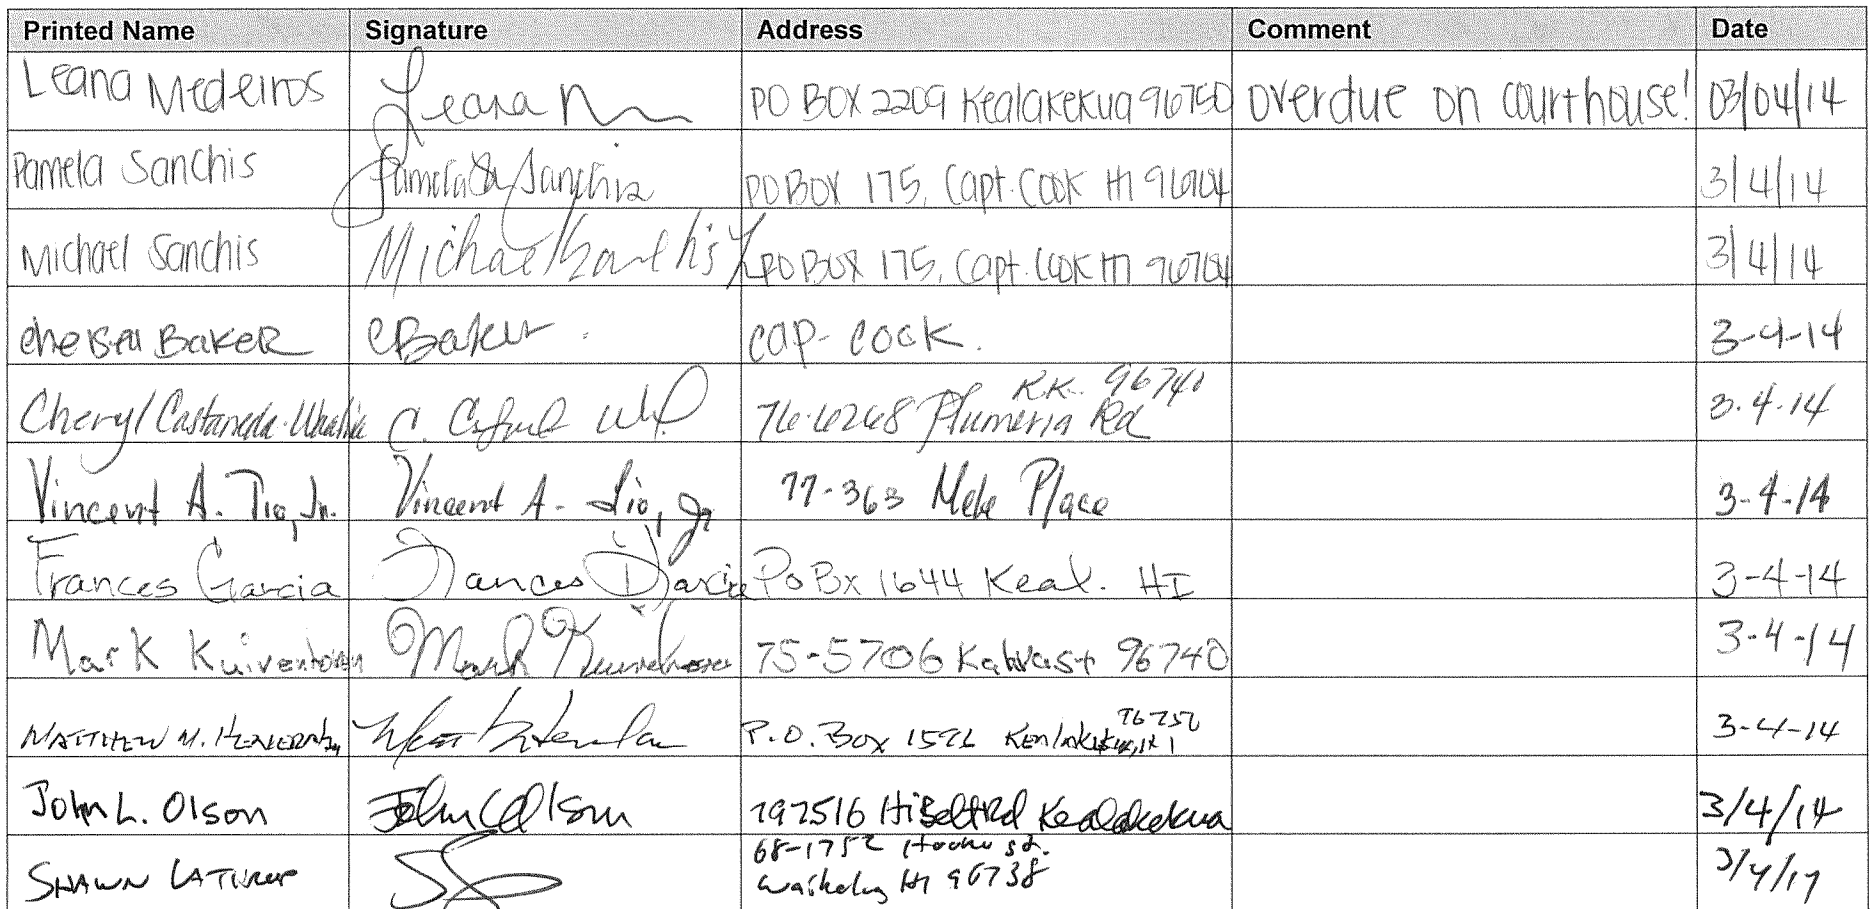 Printed Name Signature Address Comment Date
Leana Medeiros Leana M PO BOX 2209 Kealakekua 96750 overdue on courthouse! 03/04/14
Pamela Sanchis Pamela Sanchis PO BOX 175, Capt. Cook HI 96704 3/4/14
Michael Sanchis Michael Sanchis PO BOX 175, Capt. Cook HI 96704 3/4/14
Chelsea BAKER CBaker cap- cook. 3-4-14
KK. 96740
Cheryl Castaneda- C. 76-6268 Plumeria Rd 3.4.14
Vincent A. Tio, Jr. Vincent A. Tio, Jr 77-363 Mele Place 3-4-14
Frances Garcia Frances Garcia Po Bx 1644 Keal. HI 3-4-14
Mark Kuivenhoven Mark Kuivenhoven 75-5706 96740 3-4-14
96750
MATTHEW M. P.O. Box 1596 3-4-14
John L. Olson John L Olson 797516 Hi Belt Rd Kealakekua 3/4/14
68-1752 st.
SHAWN LATHROP HI 96738 3/4/14